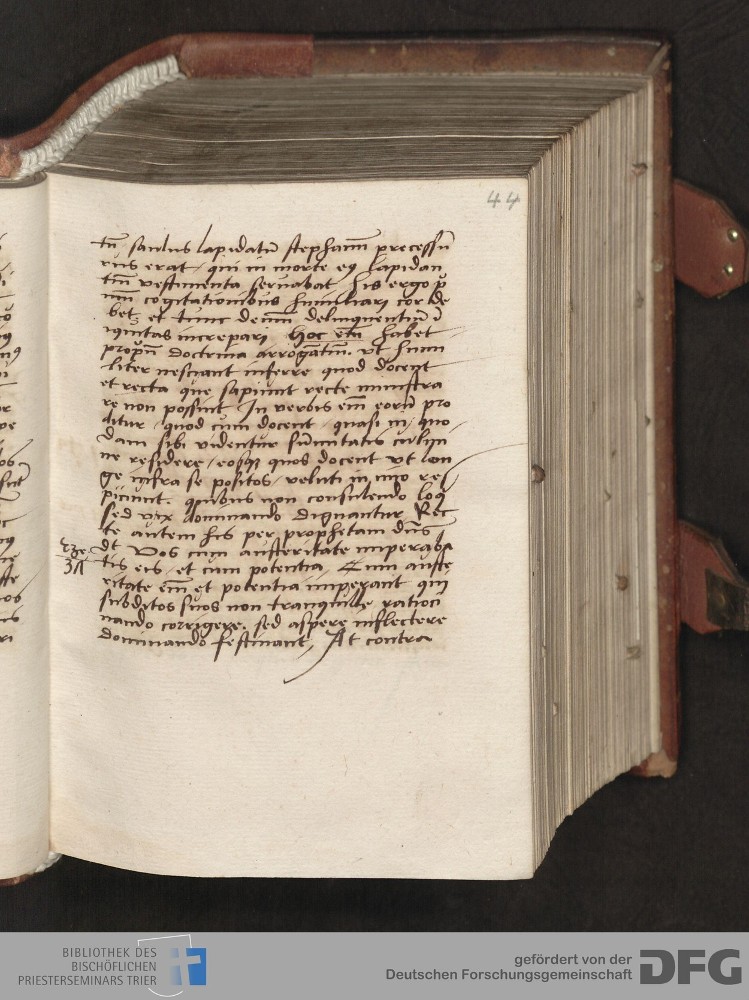 44
tū saulus lapidatū stephanū precessū
rus erat, qui in morte eꝯ lapidan
tiū vestimenta seruabat. his ergo p̄
mū cogitationibus humiliari cor de
betꝫ et tunc demū delinquentiū ī
iquitas increpari. Hoc etū habet
propriū doctrina arrogātiū. vt humi
liter nesciant inferre quod docent
et recta que sapiunt recte ministra
re non possint. In verbis em̄ eorū pro
ditur, quod cum docent, quasi in quo
dam sibi videntur sūmitatis culmi
ne residere, eosqꝫ quos docent vt lon
ge infra se positos, veluti in imo res
piciunt. quibus non consulendo loq̄
sed vix dominando dignantur. Rec
te autem his per prophetam dūs
dt Vos cum austeritate imperaba
tis eis, et cum potentia, Cum auste
ritate em̄ et potentia imperant qui
subditos suos non tranquille ratioci
nando corrigere. sed aspere inflectere
dominando festinant, At contra
Eze
34
BIBLIOTHEK DES
BISCHÖFLICHEN
PRIESTERSEMINARS TRIER
gefördert von der
Deutschen Forschungsgemeinschaft
DFG